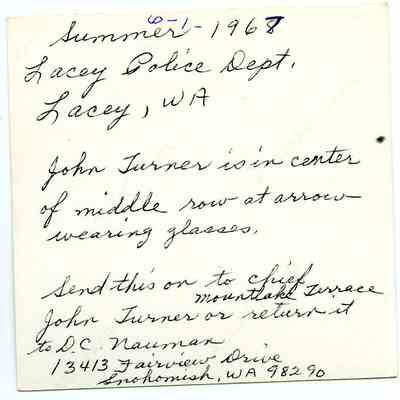 Summer 6-1-1967
Lacey Police Dept.
Lacey, WA
John Turner is in center
of middle row at arrow
wearing glasses.
Send this on to chief
Mountlake Terrace
John Turner or return it
to D.C. Nauman
13413 Fairview Drive
Snohomish, WA 98290